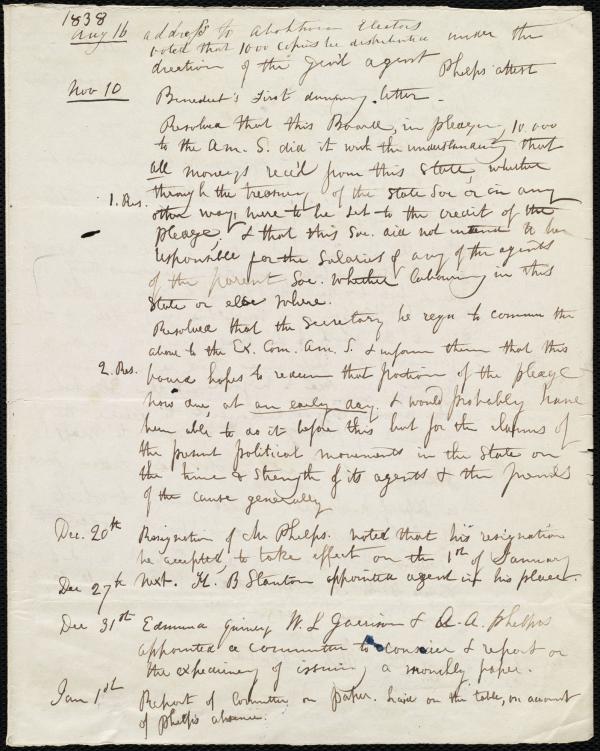 1838
Aug 16 address to Abolition Electors
voted that 1000 copies be distributed under the
direction of the Gen'l agent Phelps attest
Nov 10 Benedict's First dunning letter.
Resolved that this Board, in pledging 10.000
to the Am. S. did it with the understanding that
all moneys rec'd from this State, whether
through the treasury of the State Soc or in any
1. Res. other way, were to be set to the credit of the
pledge, & that this Soc. did not intend to be
responsible for the salaries of any of the agents
of the parent Soc. whether labouring in this
State or else where.
Resolved that the Secretary be requ to commun the
above to the Ex. Com. Am. S. & inform them that this
2. Res. board hopes to redeem that portion of the pledge
now due, at an early day, & would probably have
been able to do it before this but for the claims of
the present political movements in the State on
the time & strength of its agents & the friends
of the cause generally
Dec. 20th Resignation of Mr Phelps. voted that his resignation
be accepted, to take effect on the 1st of January
Dec 27th next. H. B Stanton appointed agent in his place.
Dec 31st Edmund Quincy W. L Garrison & A. A. Phelps
appointed a committee to consider & report on
the expediency of issuing a monthly paper.
Jan 1st Report of Committee on paper. Laid on the table, on account
of Phelps absence.